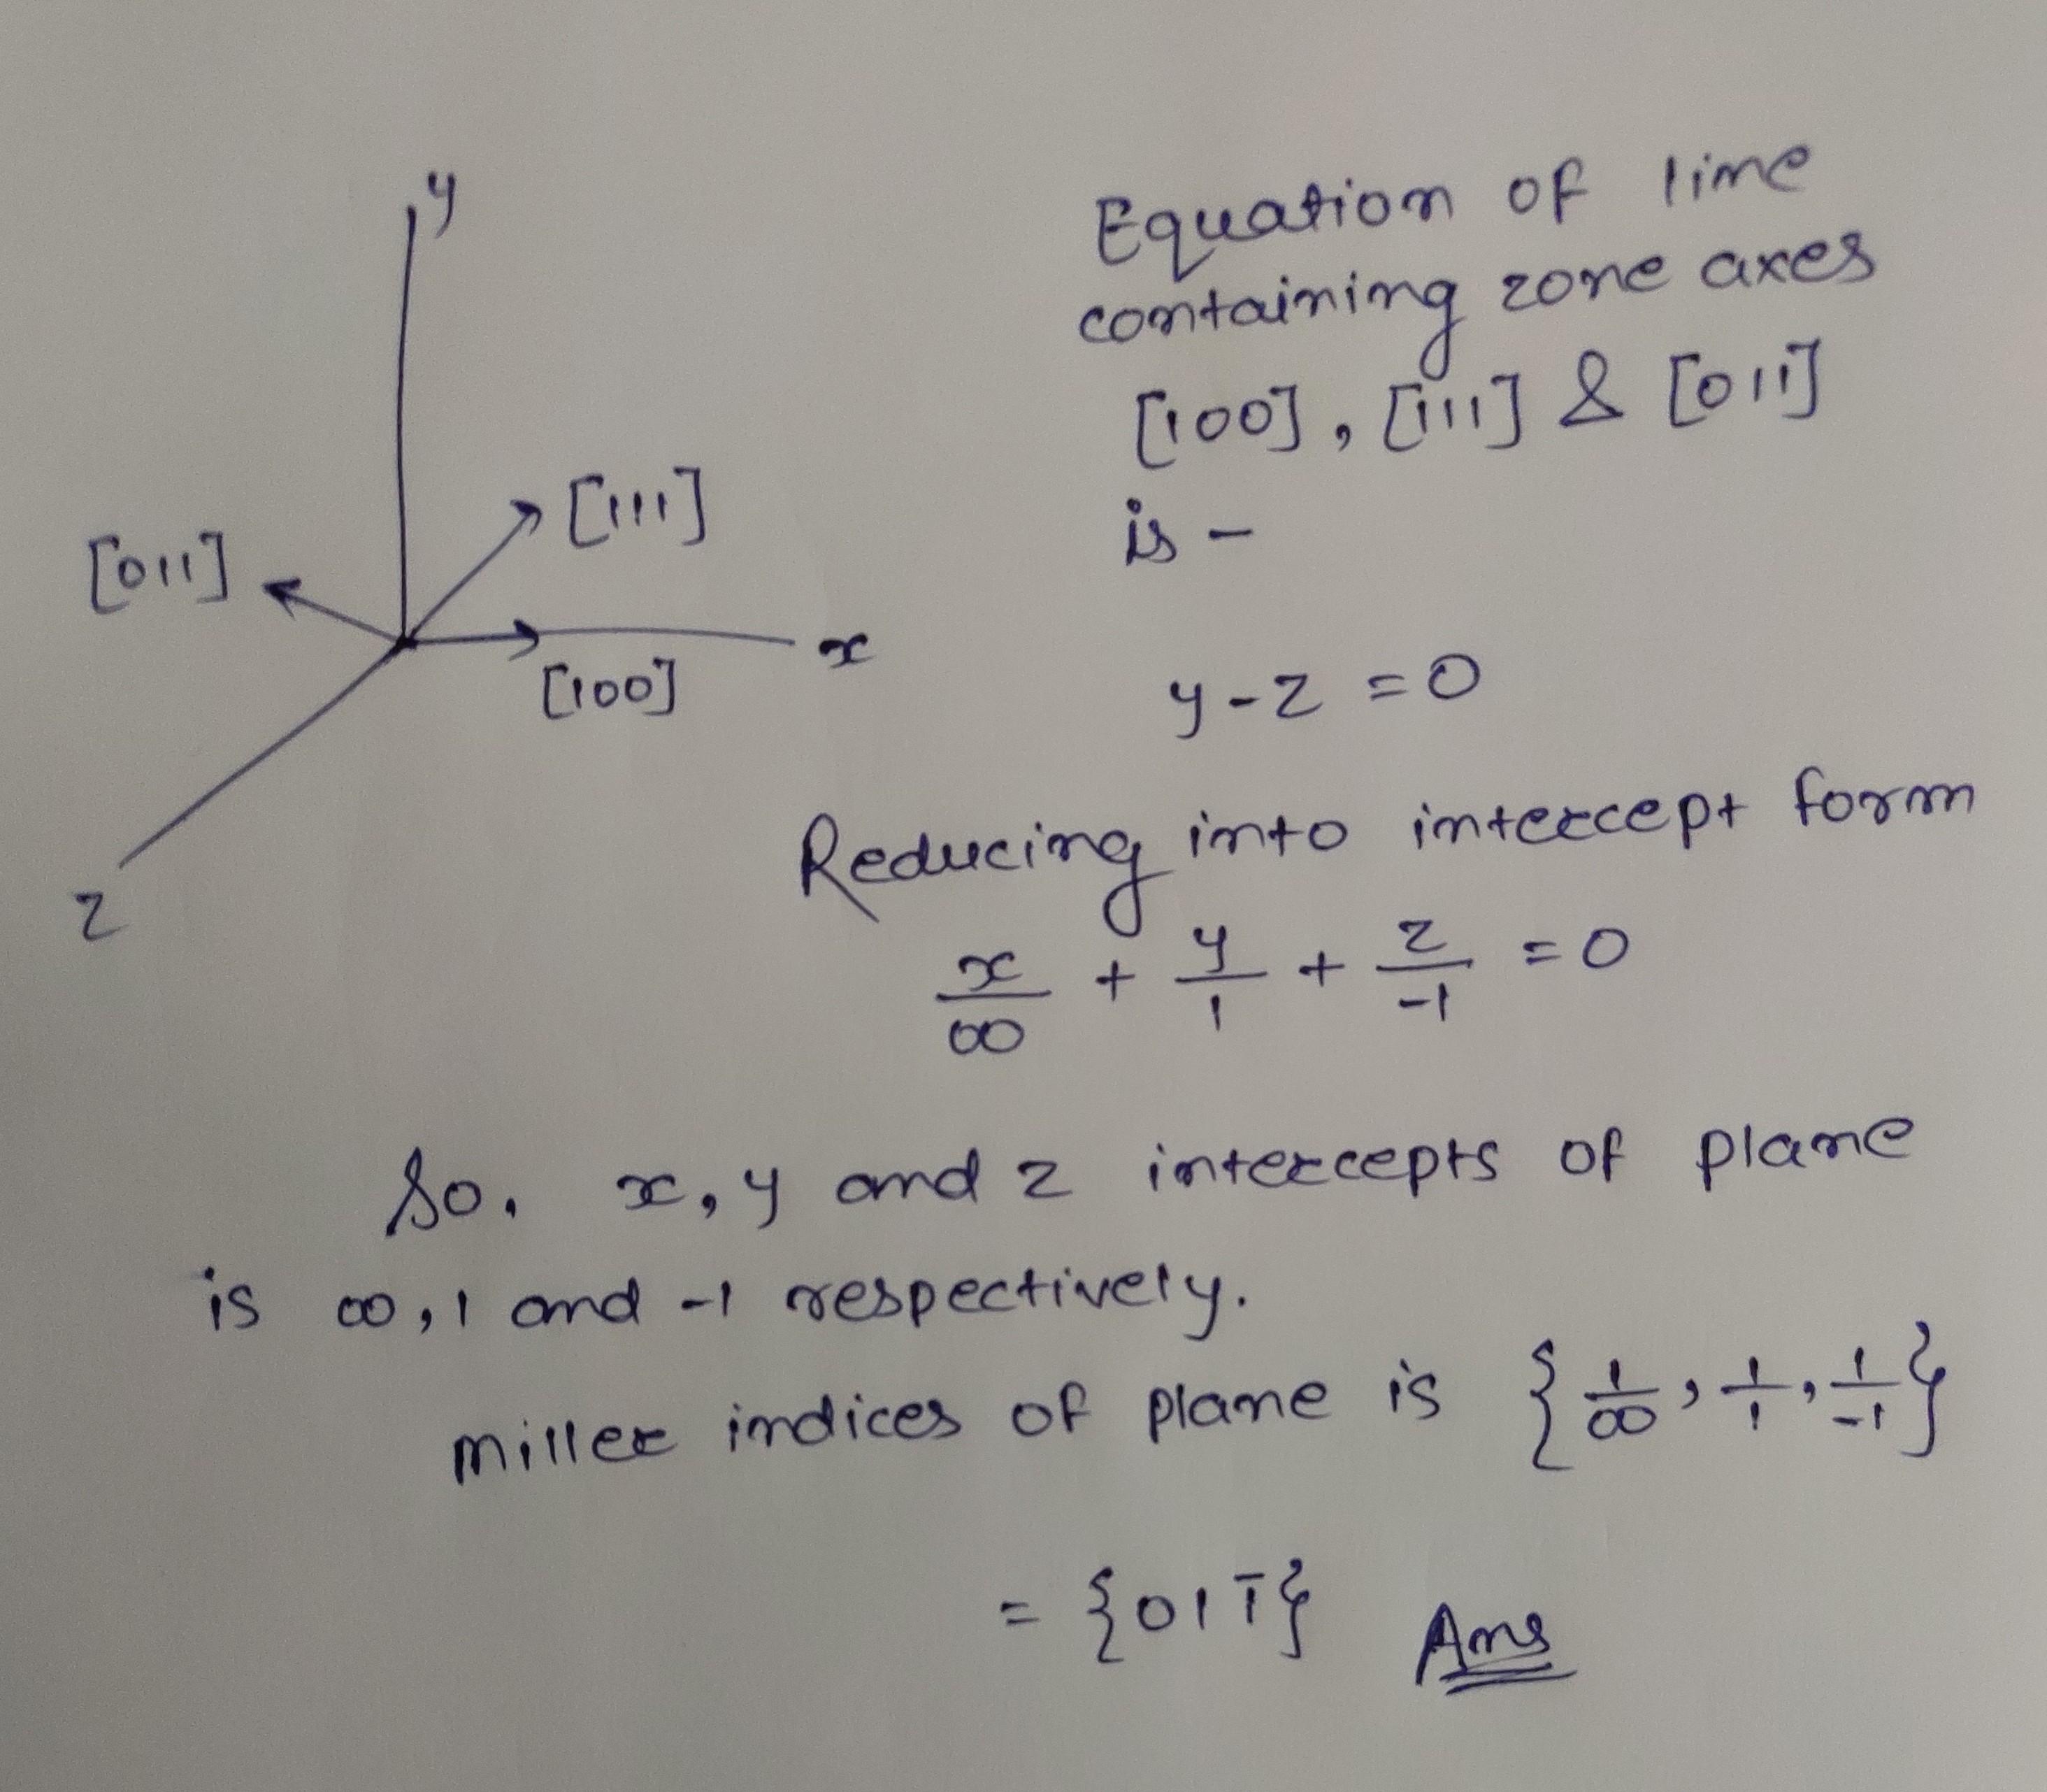 y
[111]
[011]
x
[100]
z
Equation of line
containing zone axes
[100], [111] & [011]
is -
y-z=0
Reducing into intercept form
x/∞ + y/1 + z/-1 = 0
So, x, y and z intercepts of plane
is ∞, 1 and -1 respectively.
miller indices of plane is {1/∞, 1/1, 1/-1}
= {011̄} Ans